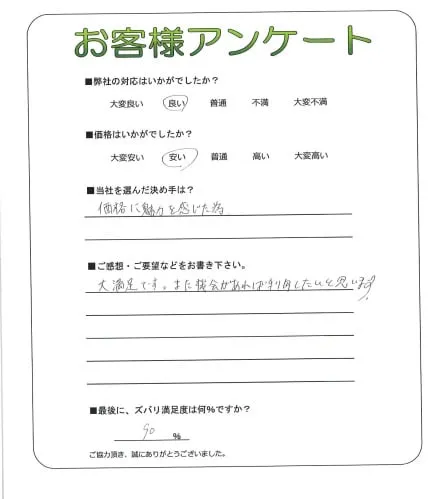 お客様アンケート
■弊社の対応はいかがでしたか？
大変良い 良い 普通 不満 大変不満
■価格はいかがでしたか？
大変安い 安い 普通 高い 大変高い
■当社を選んだ決め手は？
価格に魅力を感じた為
■ご感想・ご要望などをお書き下さい。
大満足です。また機会があれば利用したいと思います！
■最後に、ズバリ満足度は何％ですか？
90 ％
ご協力頂き、誠にありがとうございました。